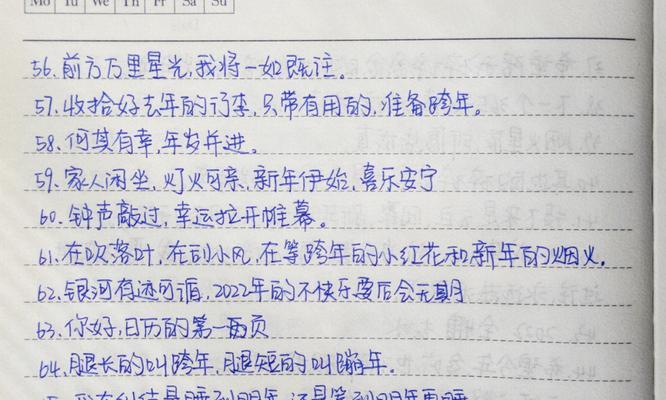 Mo Tu We Th Fr Sa Su
56.前方万里星光,我将一如既往。
57.收拾好去年的行李,只带有用的,准备跨年。
58.何其有幸,年岁并进。
59.家人闲坐,灯火可亲,新年伊始,喜乐安宁
60.钟声敲过,幸运拉开帷幕。
61.在吹落叶,在刮小风,在等跨年的小红花和新年的烟火.
62.银河有迹可循,2022年的不快乐要后会无期
63.你好,日历的第一页
64.腿长的叫跨年,腿短的叫蹦年.